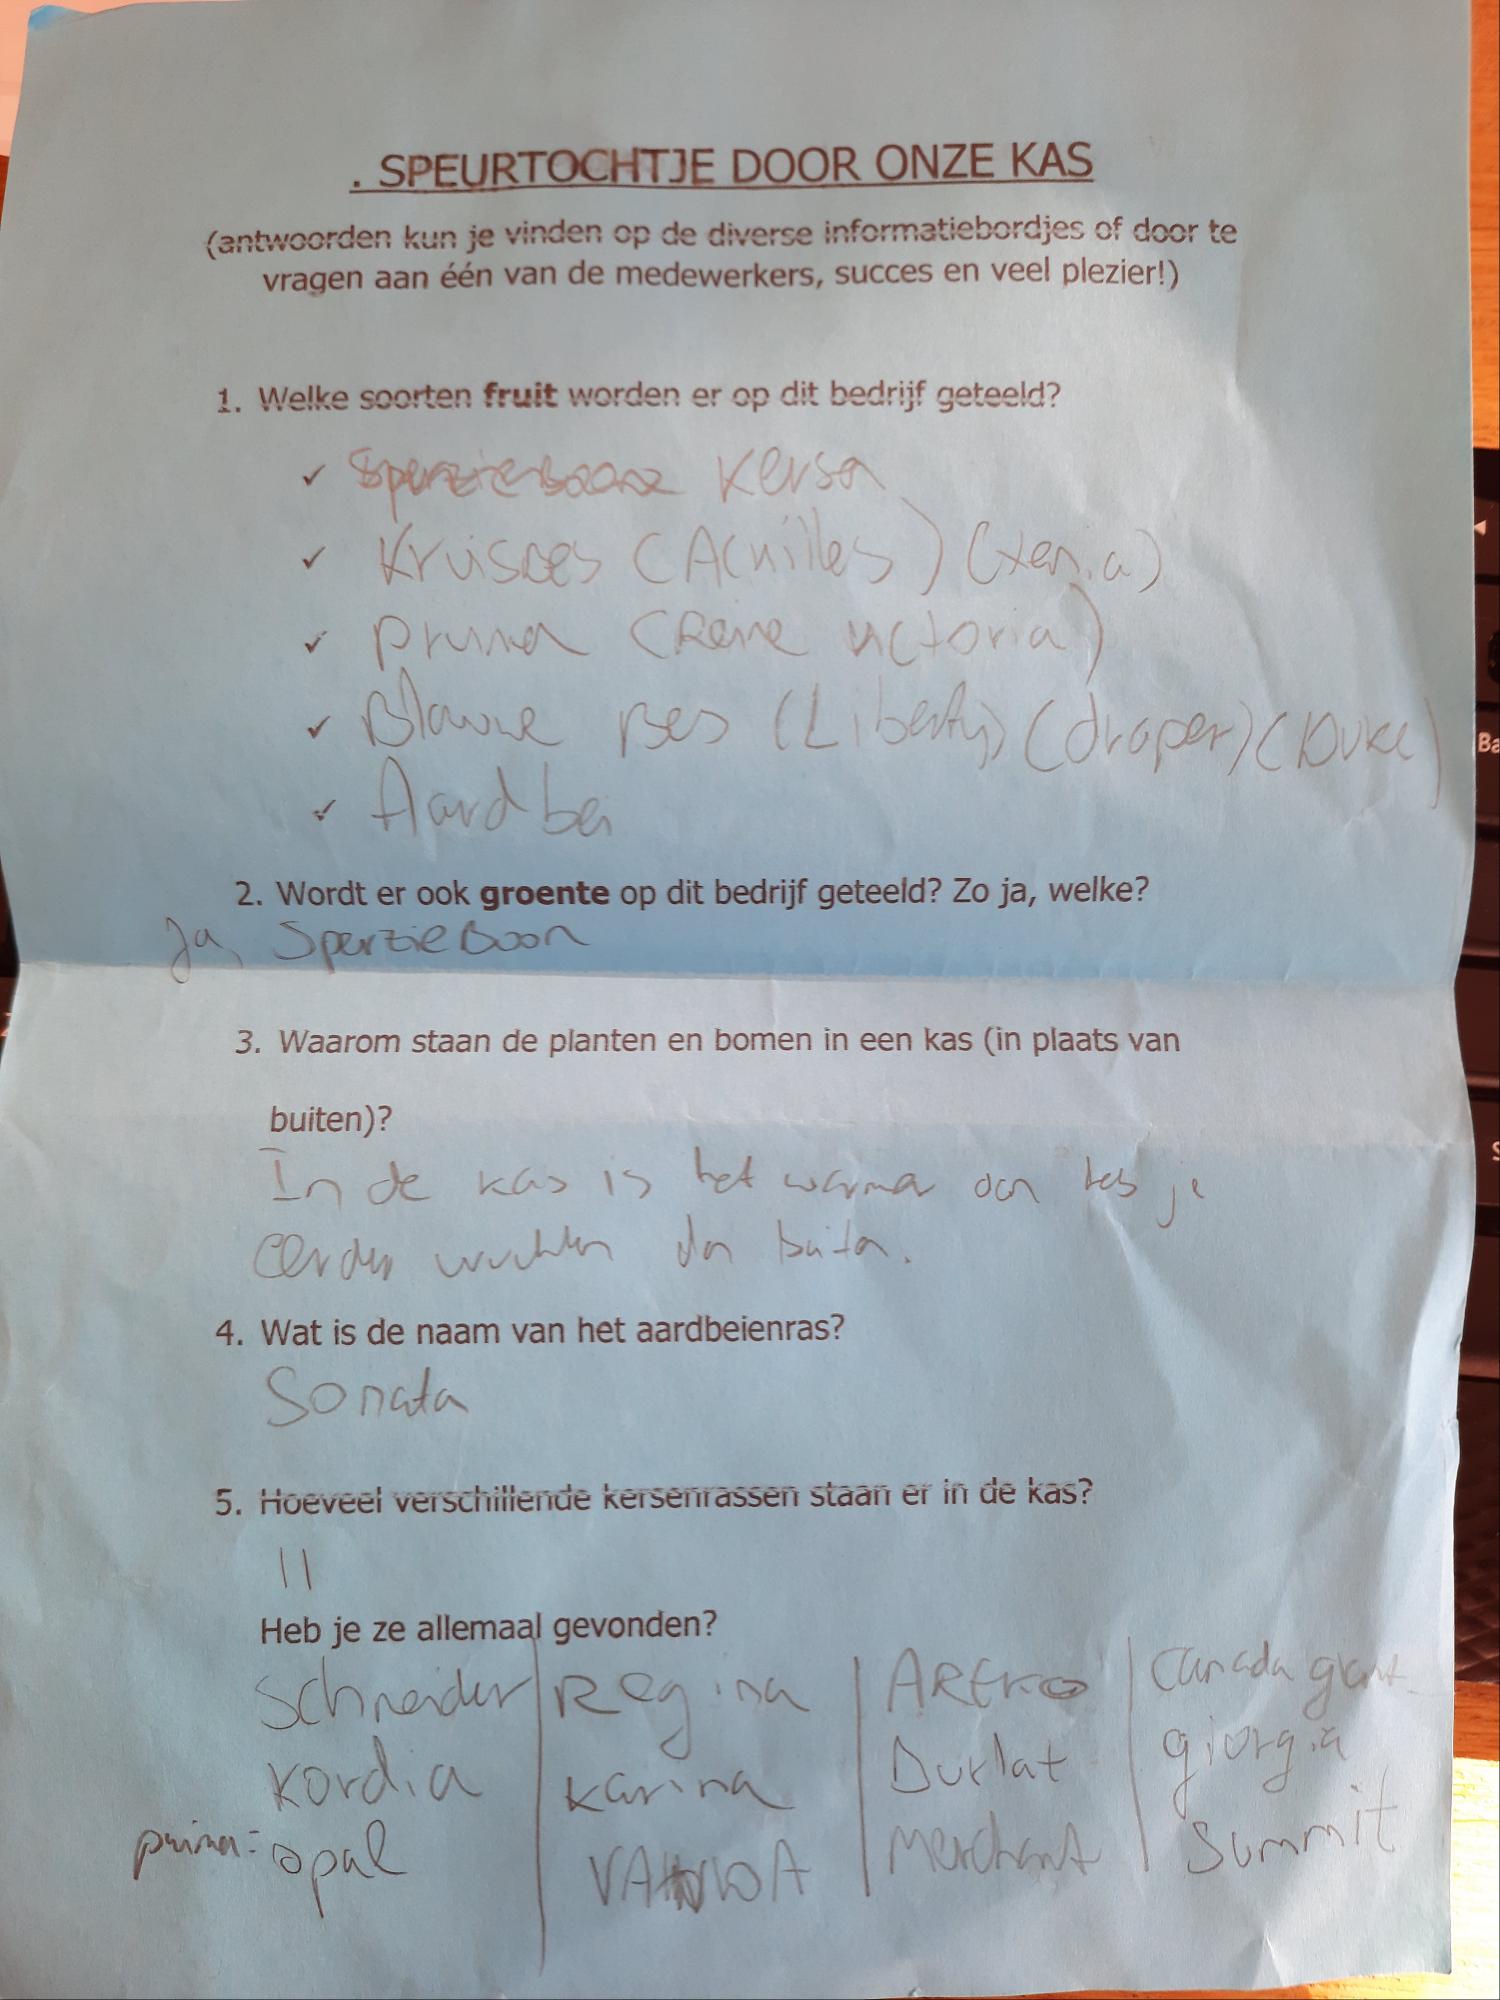 . SPEURTOCHTJE DOOR ONZE KAS
(antwoorden kun je vinden op de diverse informatiebordjes of door te
vragen aan één van de medewerkers, succes en veel plezier!)
1. Welke soorten fruit worden er op dit bedrijf geteeld?
✓ Sperzieboone Kersen
✓ Kruisbes (Achilles) (xenia)
✓ pruimen (Reine victoria)
✓ Blauwe Bes (Liberty) (draper) (Duke)
✓ Aardbei
2. Wordt er ook groente op dit bedrijf geteeld? Zo ja, welke?
Ja, SperzieBoon
3. Waarom staan de planten en bomen in een kas (in plaats van
buiten)?
In de kas is het warmer dan heb je
eerder vruchten dan buiten.
4. Wat is de naam van het aardbeienras?
Sonata
5. Hoeveel verschillende kersenrassen staan er in de kas?
11
Heb je ze allemaal gevonden?
Schneider | Regina | AREKO | Canada giant
Kordia | Karina | Burlat | giorgia
pruimen: opal | | Merchant | Summit
Ba